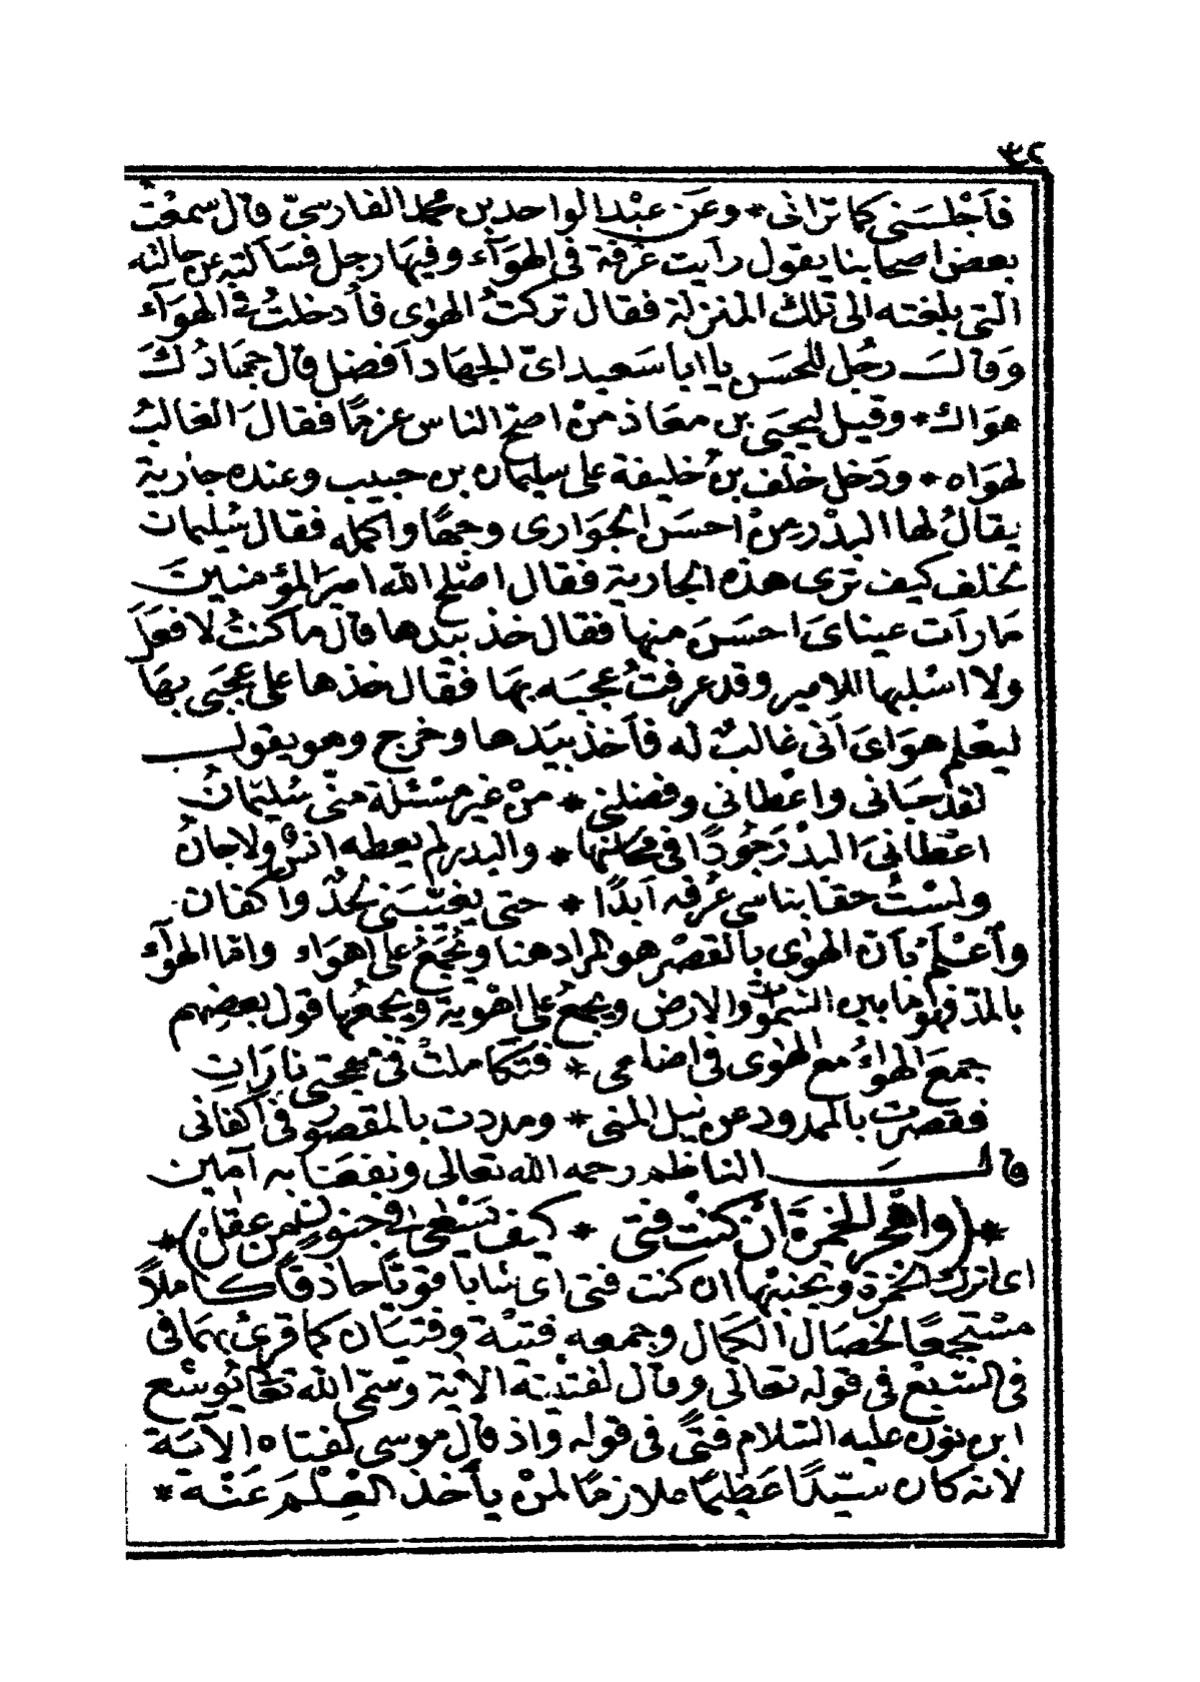 ٣٢
فأجلسنى كما ترانى * وعن عبد الواحد بن محمد الفارسىّ قال سمعت
بعض اصحابنا يقول رأيت غرفة فى الهوآء وفيها رجل فسألته عن حالته
التى بلغته الى تلك المنزلة فقال تركتُ الهوٰى فأدخلتُ فى الهوآء
وقال رجُل للحسن يا ابا سعيد اىّ الجهاد أفضل قال جهادُك
هواك * وقيل ليحيى بن معاذ منْ اصحّ الناس عزمًا فقال الغالبُ
لهواه * ودخل خلف بنُ خليفة على سليمان بن حبيب وعنده جارية
يقالُ لها البدْر منْ احسن الجوارى وجهًا واكمله فقال سُليمان
لخلف كيف ترى هذه الجارية فقال اصْلح اللّٰه امير المؤمنين
ما رأت عيناىَ احسَنَ منها فقال خذ بيدها قال ما كنتُ لافعلَ
ولا اسْلبها للامير وقد عرفتُ عجبه بها فقال خذها على عجبى بها
ليعْلم هواىَ أنى غالبٌ له فأخذ بيدها وخرج وهو يقول
لقدْ حبانى واعْطانى وفضلنى * منْ غير مسْئلة منّى سُليمانُ
اعْطانىَ البدْرَ جُودًا فى محاسنها * والبدر لم يعطه انسٌ ولا جانُ
ولسْتُ حقا بناسى عُرفه أبدًا * حتى يغيّبنى لحْدٌ واكفان
وأعْلمْ بأن الهوٰى بالقصْر هو المراد هنا ويُجْمَعُ على اهواء واما الهوآء
بالمدّ فهو ما بين السموٰت والارض ويجمعُ على اهْوية ويجمعُها قول بعضِهم
جمعَ الهواءُ مع الهوٰى فى اضلعى * فتكاملتْ فى مهجتى نارانِ
فقصرت بالممدود عن نيل المنى * ومددت بالمقصور فى اكفانى
قال الناظم رحمه اللّٰه تعالى ونفعنا به آمين
*(واهْجر الخمرة أنْ كنْت فتى * كيف يسْعٰى فى جنونٍ من عقلْ)*
اى اترك الخمرة وتجنبْها ان كنت فتى اى شابا قويًا حاذقًا كاملاً
مسْتجمعًا لخصال الكمال وجمعه فتيْة وفتيان كما قرئ بهما فى
فى السّبْع فى قوله تعالى وقال لفتْيته الآية وسمّى اللّٰه تعالى يُوشع
ابن نون عليه السّلام فتًى فى قوله واذ قال موسى لفتاه الآية
لأنه كان سيّدًا عظيمًا ملازمًا لمنْ يأخذ العِلْم عنْه *